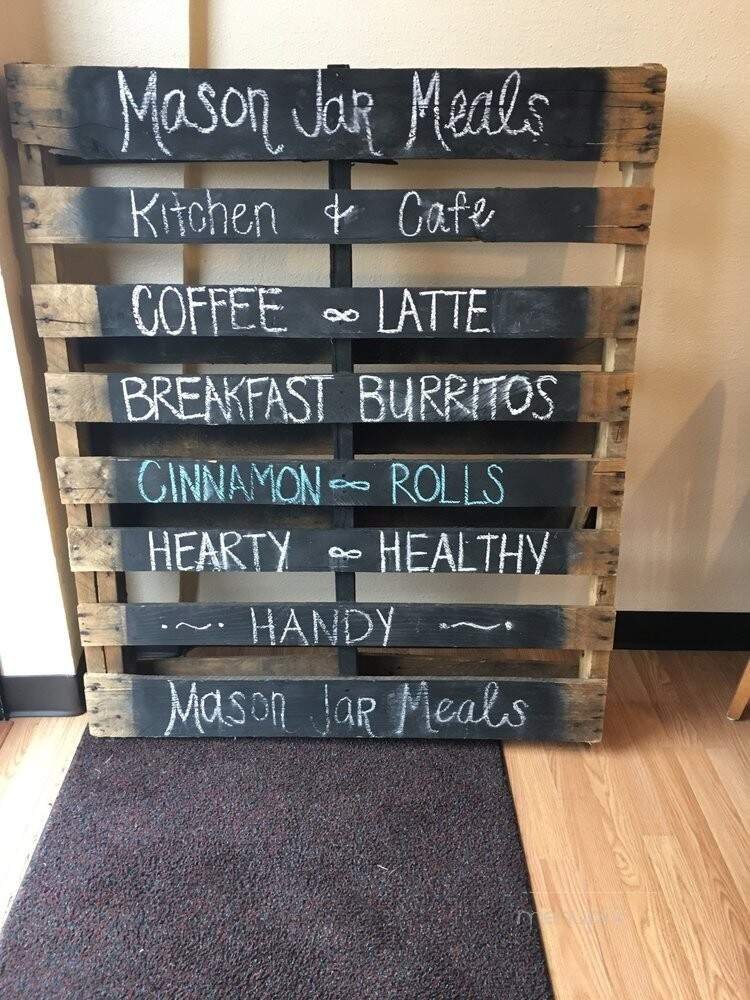 Mason Jar Meals
Kitchen & Cafe
COFFEE ∞ LATTE
BREAKFAST BURRITOS
CINNAMON ∞ ROLLS
HEARTY ∞ HEALTHY
·~· HANDY ·~·
Mason Jar Meals